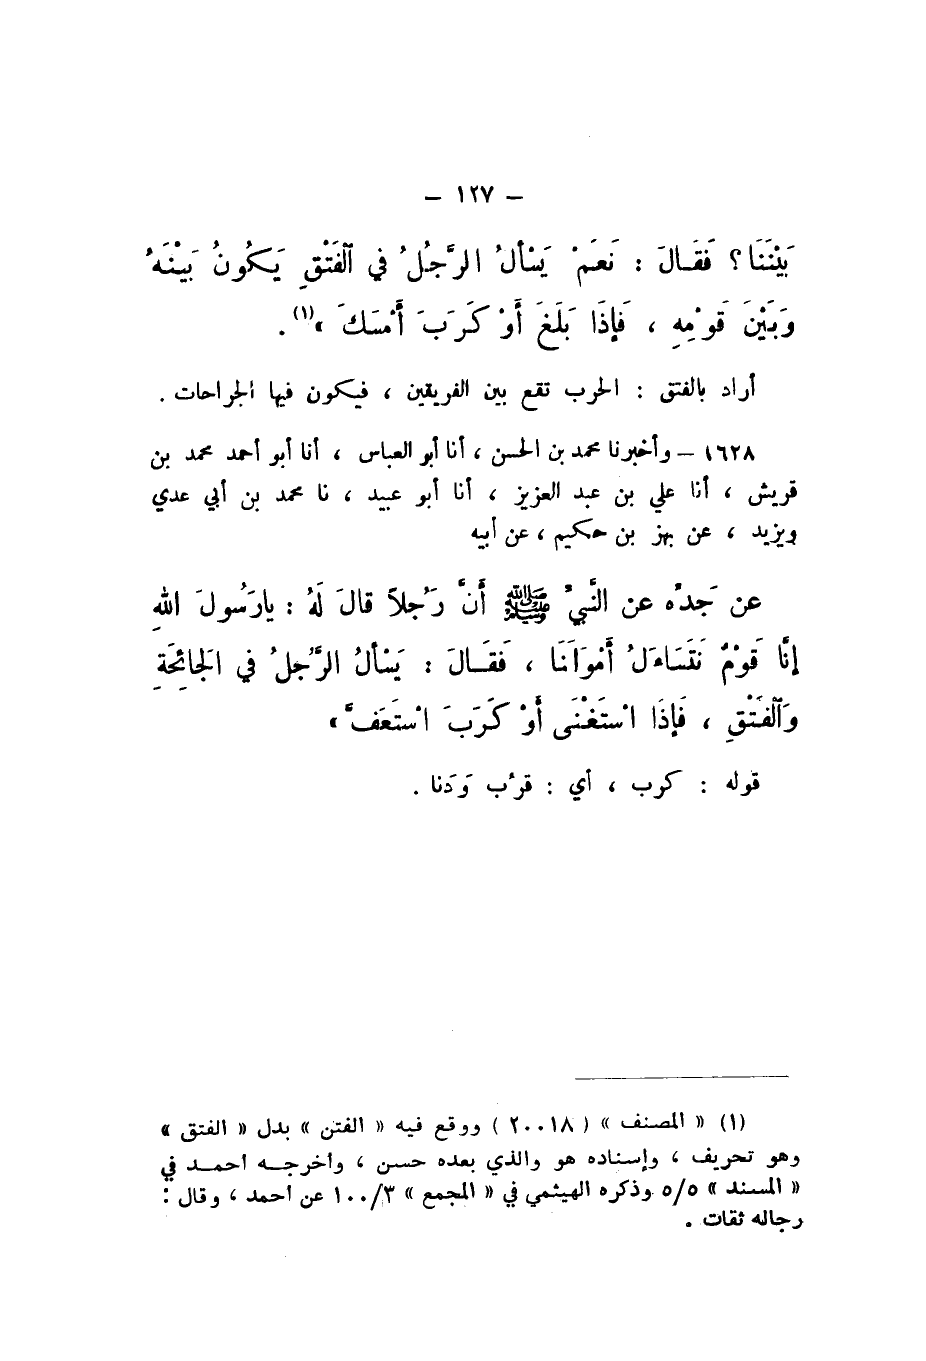 – ١٢٧ –
بَيْنَنَا ؟ فَقَالَ : نَعَمْ يَسْأَلُ الرَّجُلُ في ٱلفَتْقِ يَكُونُ بَيْنَهُ
وَبَيْنَ قَوْمِهِ ، فَإِذَا بَلَغَ أَوْ كَرَبَ أَمْسَكَ »(١) .
أراد بالفتق : الحرب تقع بين الفريقين ، فيكون فيها الجراحات .
١٦٢٨ – وأخبرنا محمد بن الحسن ، أنا أبو العباس ، أنا أبو أحمد محمد بن
قريش ، أنا علي بن عبد العزيز ، أنا أبو عبيد ، نا محمد بن أبي عدي
ويزيد ، عن بهز بن حكيم ، عن أبيه
عن جَدِّه عن النَّبيِّ ﷺ أَنَّ رَجُلاً قالَ لَهُ : يارَسُولَ اللهِ
إِنَّا قَوْمٌ نَتَسَاءَلُ أَمْوَالَنَا ، فَقَالَ : يَسْأَلُ الرَّجلُ في الَجائِحَةِ
وَٱلفَتْقِ ، فَإِذَا اسْتَغْنَى أَوْ كَرَبَ اسْتَعَفَّ »
قوله : كرب ، أي : قرُب وَدَنا .
(١) « المصنف » ( ٢٠٠١٨ ) ووقع فيه « الفتن » بدل « الفتق »
وهو تحريف ، وإسناده هو والذي بعده حسن ، وأخرجه أحمد في
« المسند » ٥/٥ وذكره الهيثمي في « المجمع » ١٠٠/٣ عن أحمد ، وقال :
رجاله ثقات .